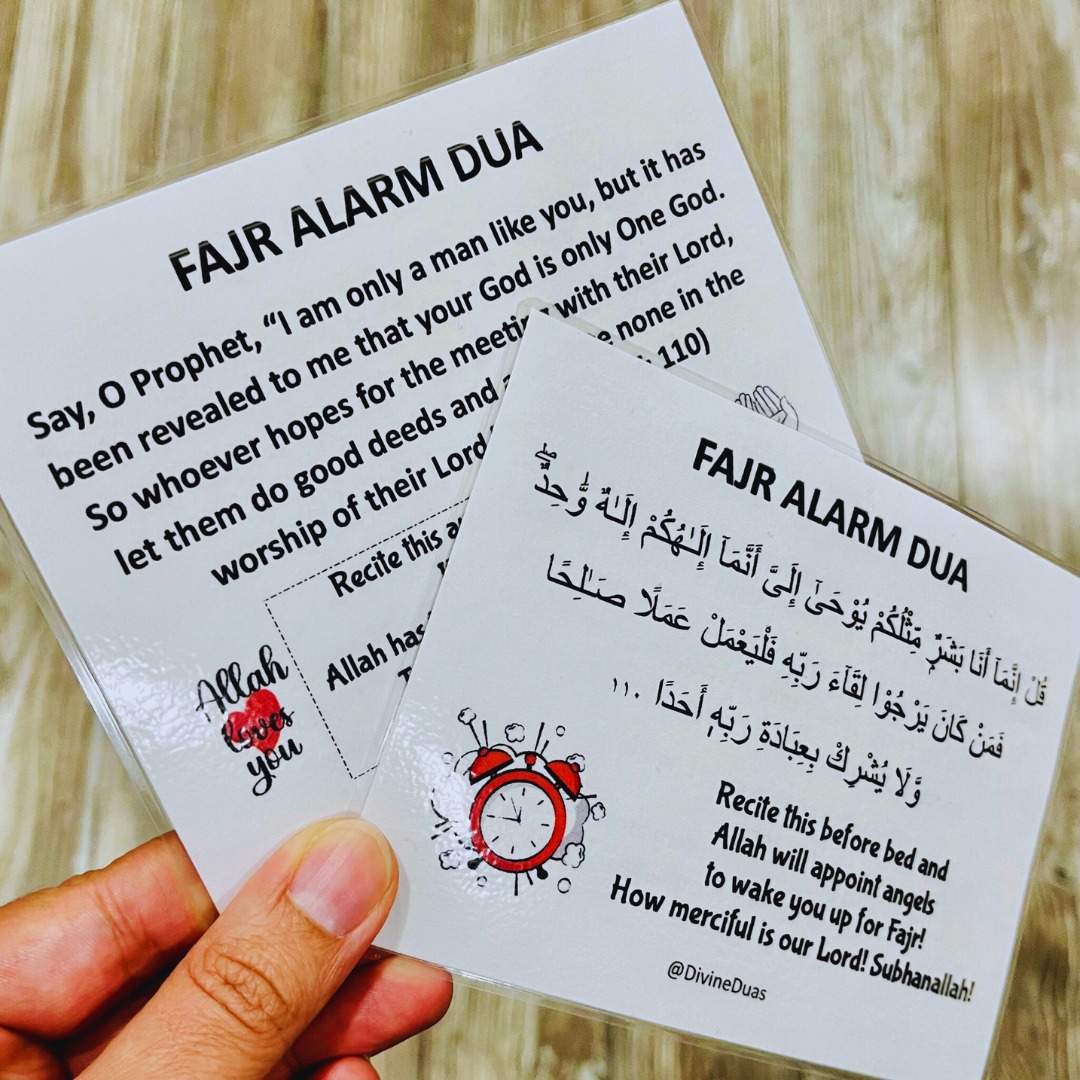 FAJR ALARM DUA
Say, O Prophet, “I am only a man like you, but it has
been revealed to me that your God is only One God.
So whoever hopes for the meeting with their Lord,
let them do good deeds and none in the
worship of their Lord 110)
Recite this
Allah has
Allah
Loves
you
FAJR ALARM DUA
قُلْ إِنَّمَآ أَنَا۠ بَشَرٌ مِّثْلُكُمْ يُوحَىٰٓ إِلَىَّ أَنَّمَآ إِلَـٰهُكُمْ إِلَـٰهٌ وَٰحِدٌ ۖ
فَمَن كَانَ يَرْجُوا۟ لِقَآءَ رَبِّهِۦ فَلْيَعْمَلْ عَمَلًا صَـٰلِحًا
وَلَا يُشْرِكْ بِعِبَادَةِ رَبِّهِۦٓ أَحَدًۢا ١١٠
Recite this before bed and
Allah will appoint angels
to wake you up for Fajr!
How merciful is our Lord! Subhanallah!
@DivineDuas